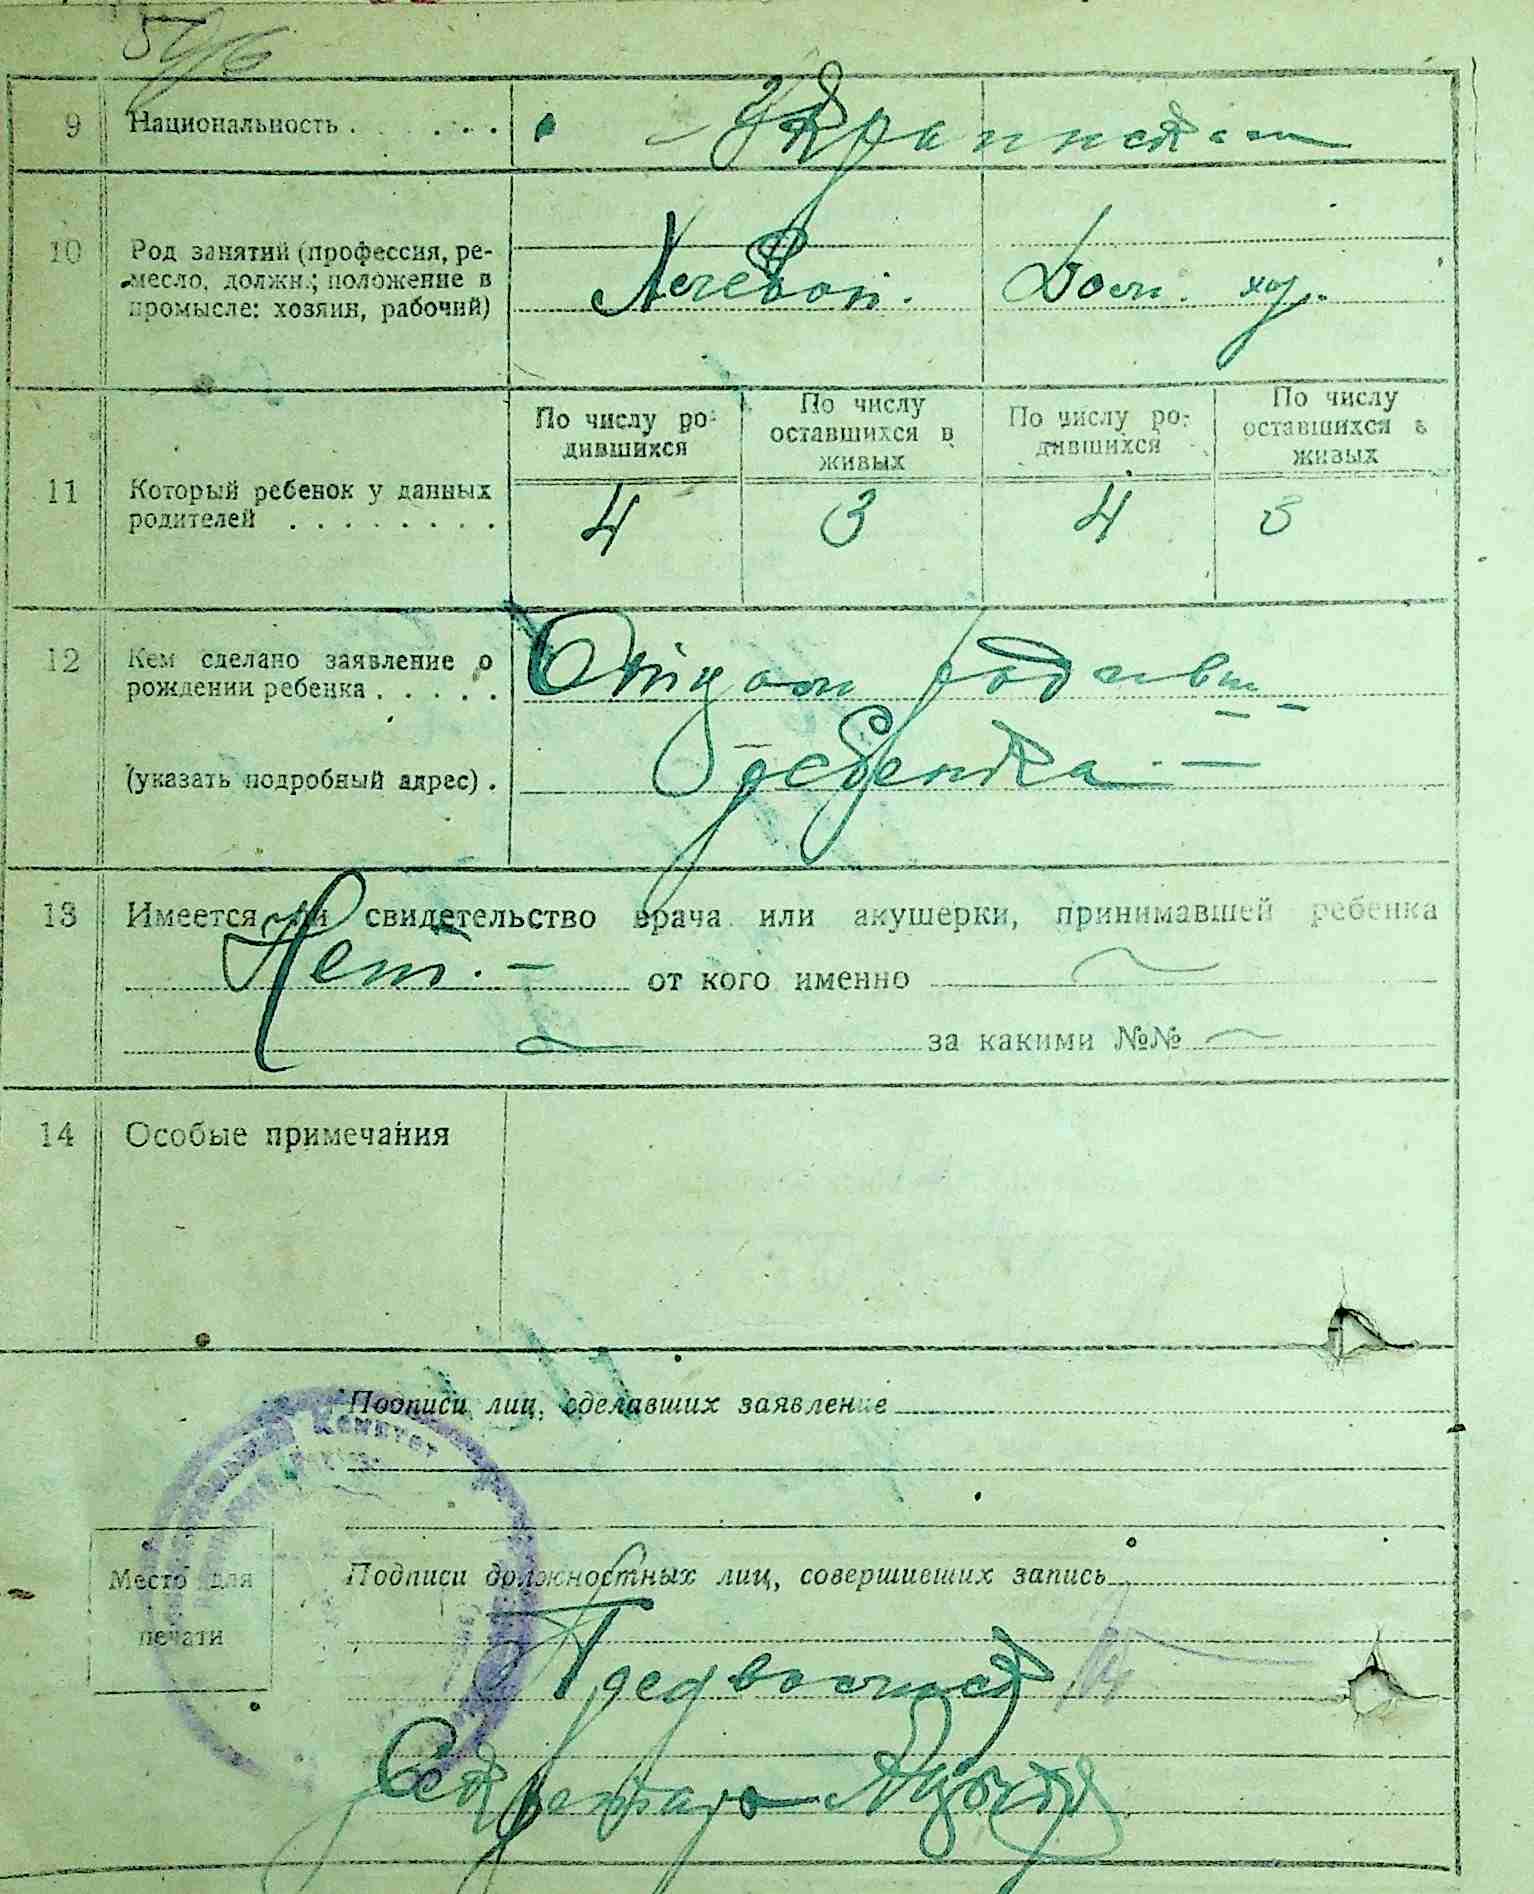 9 Национальность . . . . . . Украинская
10 Род занятий (профессия, ре-
месло, должн.; положение в
промысле: хозяин, рабочий)
Дом. хоз.
По числу ро-
дившихся
По числу
оставшихся в
живых
По числу ро-
дившихся
По числу
оставшихся в
живых
11 Который ребенок у данных
родителей . . . . . . . . .
4 3 4 3
12 Кем сделано заявление о
рождении ребенка . . . . .
Отцом родивш
ребенка. —
(указать подробный адрес) .
13 Имеется ли свидетельство врача или акушерки, принимавшей ребенка
Нет. — от кого именно
за какими №№
14 Особые примечания
Подписи лиц, сделавших заявление
Комитет
Место для
печати
Подписи должностных лиц, совершивших запись
Секретарь